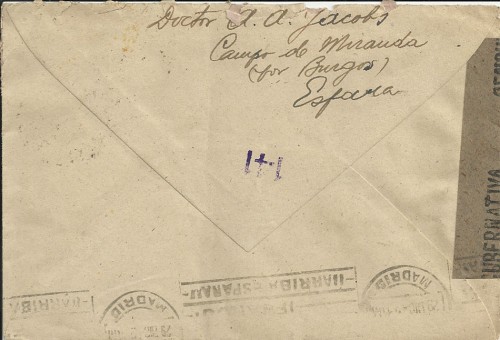 Doctor A. A. Jacobs
Campo de Miranda
(por Burgos)
España
1+1
UBERNATIVA
¡¡ARRIBA ESPAÑA!!
MADRID
MADRID
¡¡ARRIBA